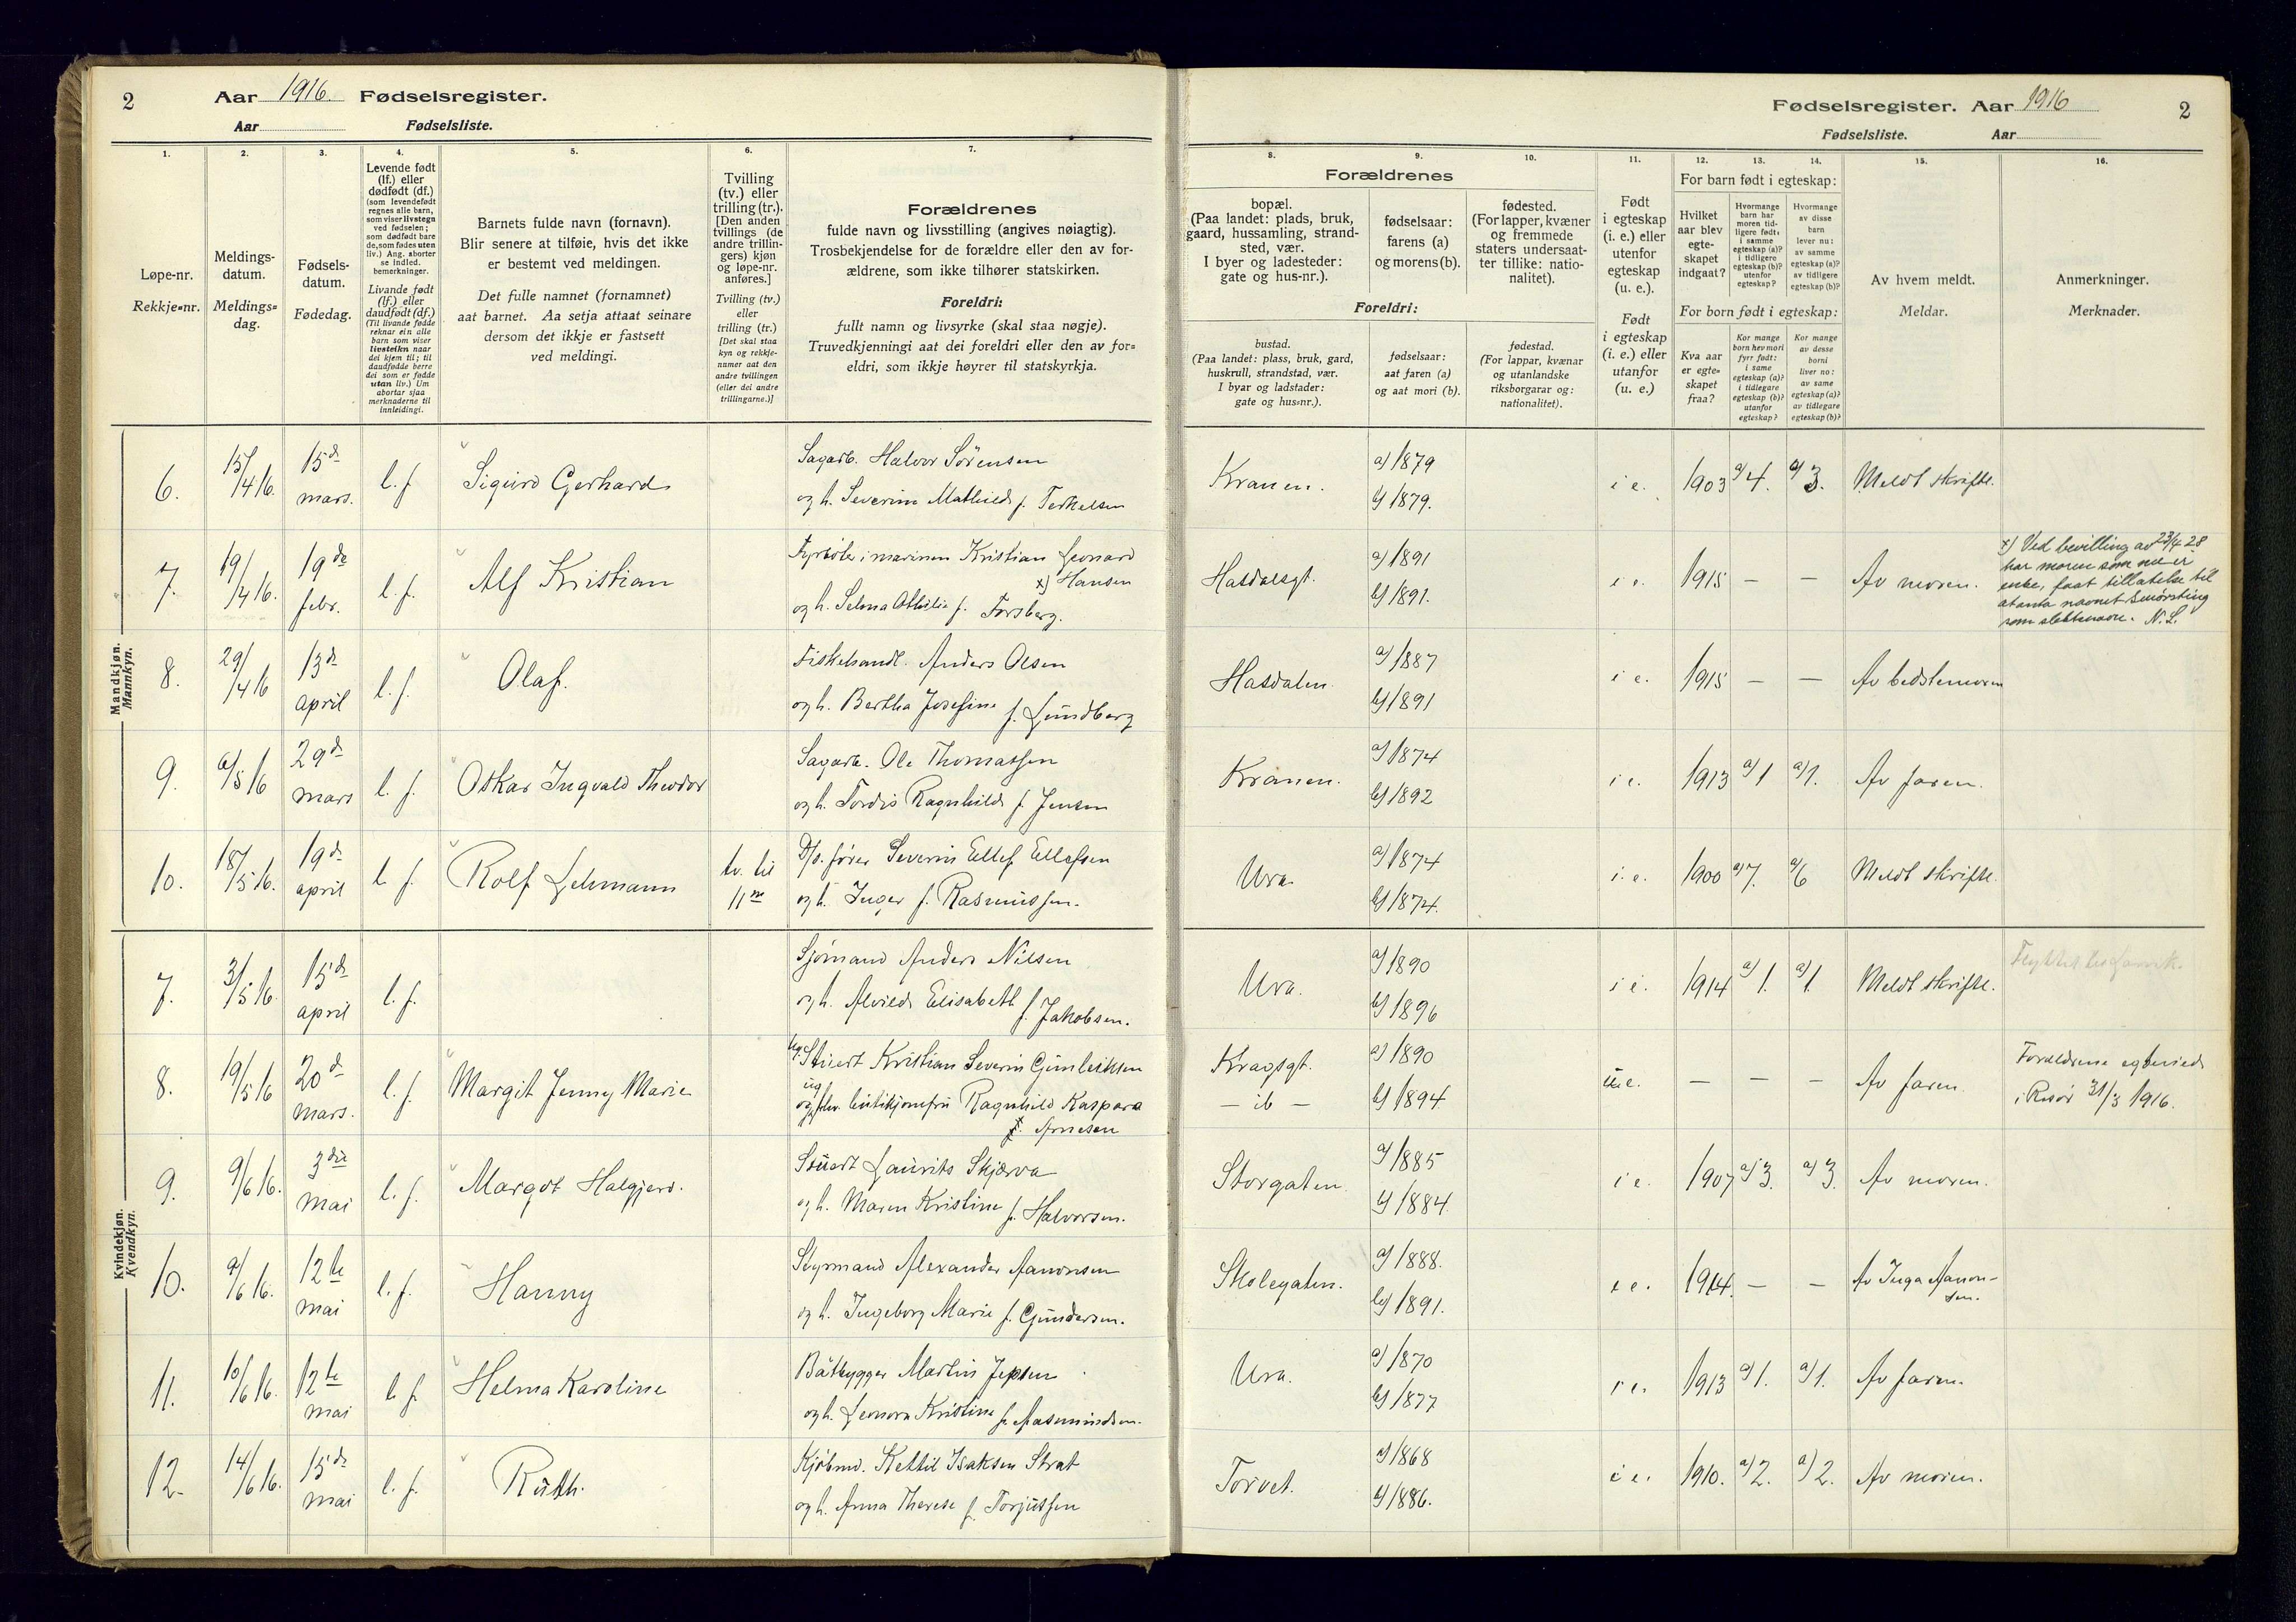 2
Aar 1916. Fødselsregister.
Aar Fødselsliste.
Fødselsregister. Aar 1916
2
Fødselsliste. Aar
1.
Løpe-nr.
Rekkje=nr.
2.
Meldings-
datum.
Meldings=
dag.
3.
Fødsels-
datum.
Fødedag.
4.
Levende født
(lf.) eller
dødfødt (df.)
(som levendefødt
regnes alle barn,
som viser livstegn
ved fødselen;
som dødfødt bare
de, som fødes uten
liv.) Ang. aborter
se indled.
bemerkninger.
Livande født
(lf.) eller
daudfødt (df.)
(Til livande fødde
reknar ein alle
barn som viser
livsteikn naar
dei kjem til; til
daudfødde berre
dei som er fødde
utan liv.) Um
abortar sjaa
merknaderne til
innleidingi.
5.
Barnets fulde navn (fornavn).
Blir senere at tilføie, hvis det ikke
er bestemt ved meldingen.
Det fulle namnet (fornamnet)
aat barnet. Aa setja attaat seinare
dersom det ikkje er fastsett
ved meldingi.
6.
Tvilling
(tv.) eller
trilling (tr.).
[Den anden
tvillings (de
andre trillin-
gers) kjøn
og løpe-nr.
anføres.]
Tvilling (tv.)
eller
trilling (tr.)
[Det skal staa
kyn og rekkje-
numer aat den
andre tvillingen
(eller dei andre
trillingarne.)]
7.
Forældrenes
fulde navn og livsstilling (angives nøiagtig).
Trosbekjendelse for de forældre eller den av for-
ældrene, som ikke tilhører statskirken.
Foreldri:
fullt namn og livsyrke (skal staa nøgje).
Truvedkjenningi aat dei foreldri eller den av for=
eldri, som ikkje høyrer til statskyrkja.
Forældrenes
8.
bopæl.
(Paa landet: plads, bruk,
gaard, hussamling, strand-
sted, vær.
I byer og ladesteder:
gate og hus-nr.).
9.
fødselsaar:
farens (a)
og morens (b).
10.
fødested.
(For lapper, kvæner
og fremmede
staters undersaat-
ter tillike: natio-
nalitet).
Foreldri:
bustad.
(Paa landet: plass, bruk, gard,
huskrull, strandstad, vær.
I byar og ladstader:
gate og hus=nr.).
fødselsaar:
aat faren (a)
og aat mori (b).
fødestad.
(For lappar, kvænar
og utanlandske
riksborgarar og:
nationalitet).
11.
Født
i egteskap
(i. e.) eller
utenfor
egteskap
(u. e.).
Født
i egteskap
(i. e.) eller
utanfor
(u. e.)
12. 13. 14.
For barn født i egteskap:
Hvilket
aar blev
egte-
skapet
indgaat?
Hvormange
barn har
moren tid-
ligere født:
i samme
egteskap (a)?
i tidligere
egteskap (b)?
utenfor
egteskap?
Hvormange
av disse
barn
lever nu:
av samme
egteskap (a)?
av tidligere
egteskap (b)?
For born født i egteskap:
Kva aar
er egte=
skapet
fraa?
Kor mange
born hev mori
fyrr født:
i same
egteskap (a)?
i tidlegare
egteskap (b)?
utanfor
egteskap?
Kor mange
av desse
borni
liver no:
av same
egteskap (a)?
av tidlegare
egteskap (b)?
15.
Av hvem meldt.
Meldar.
16.
Anmerkninger.
Merknader.
Mandkjøn.
Mannkyn.
6. 15/4 16. 15de mars. l. f. Sigurd Gerhard Sagarb. Halvor Sørensen
og h. Severine Mathilde f. Terkelsen Kranen. a) 1879 b) 1879. i e. 1903 a) 4. a) 3. Meldt skriftl.
7. 19/4 16. 19de febr. l. f. Alf Kristian Fyrbøter i marinen Kristian Leonard
x) Hansen
og h. Selma Othilie f. Forsberg. Hasdalsgt. a) 1891 b) 1891. i e. 1915 — — Av moren.
x) Ved bevilling av 23/4 28
har moren som nu er
enke, faat tillatelse til
at anta navnet Smørsting
som slektsnavn. N. L.
8. 29/4 16 13de april l. f. Olaf. Fiskehandl. Anders Olsen
og h. Bertha Josefine f. Lundberg Hasdalen a) 1887 b) 1891 i e. 1915 — — Av bedstemoren
9. 6/5 16 29de mars l. f. Oskar Ingvald Theodor Sagarb. Ole Thomassen
og h. Tordis Ragnhild f. Jensen Kranen. a) 1874 b) 1892 i e. 1913 a) 1 a) 1. Av faren.
10. 18/5 16. 19de april l. f. Rolf Lehmann tv. til 11te D/s. fører Severin Ellef Ellefsen
og h. Inger f. Rasmussen. Ura a) 1874 b) 1874. i. e. 1900 a) 7. a) 6 Meldt skriftl.
Kvindekjøn.
Kvendkyn.
7. 3/5 16. 15de april l. f. Sjømand Anders Nilsen
og h. Alvilde Elisabeth f. Jakobsen. Ura. a) 1890 b) 1896 i e. 1914 a) 1. a) 1. Meldt skriftl. Flyttet til Larvik.
8. 19/5 16 20de mars. l. f. Margit Jenny Marie Ug. Stuert Kristian Severin Gunleiksen
Ragnhild Kaspara
Arnesen Kragsgt. — ib — a) 1890 b) 1894 u.e. — — — Av faren Forældrene egteviede
i Risør 31/3 1916.
9. 9/6 16. 3die mai l. f. Margot Halgjerd. Stuert Laurits Skjærva
og h. Maren Kristine f. Halvorsen. Storgaten. a) 1885 b) 1884. i e. 1907 a) 3. a) 3. Av moren.
10. 9/6 16. 12te mai l. f. Hanny Styrmand Alexander Aanonsen
og h. Ingeborg Marie f. Gundersen. Skolegaten. a) 1888. b) 1891. i e. 1914. — — Av Inga Aanon-
sen.
11. 10/6 16. 12te mai l. f. Helma Karoline Båtbygger Martin Jepsen
og h. Leonora Kristine f. Aasmundsen. Ura. a) 1870 b) 1877 i e. 1913 a) 1. a) 1. Av faren.
12. 14/6 16. 15de mai l. f. Ruth. Kjøbmd. Kettil Isaksen Strat
og h. Anna Therese f. Torjussen Torvet. a) 1868 b) 1886. i e. 1910. a) 2. a) 2. Av moren.